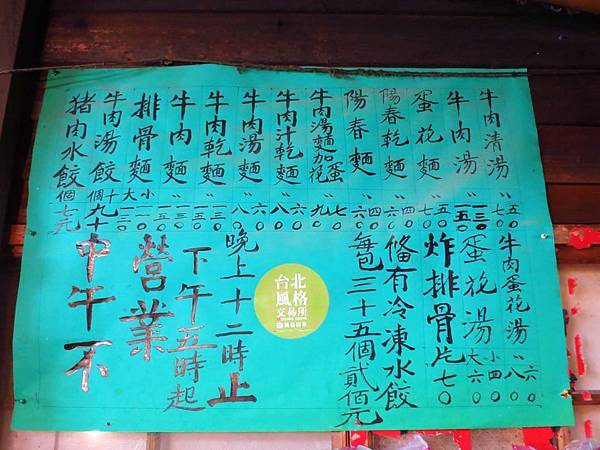 牛肉清湯 〃 七〇 五〇
牛肉湯 〃 一五〇 一三〇
蛋花麵 〃 七〇 五〇
陽春乾麵 〃 六〇 四〇
陽春麵 〃 六〇 四〇
牛肉湯麵加蛋花 〃 九〇 七〇
牛肉汁乾麵 〃 八〇 六〇
牛肉湯麵 〃 八〇 六〇
牛肉乾麵 〃 一五〇 一三〇
牛肉麵 〃 一五〇 一三〇
排骨麵 大 小
牛肉湯餃十個 九十
豬肉水餃個七元
牛肉蛋花湯 〃 八〇 六〇
蛋花湯 大六〇 小四〇
炸排骨片七〇
俻有冷凍水餃
每包三十五個貳佰元
台北
風格
交易所
晚上十二時止
下午五時起
營業
中午不